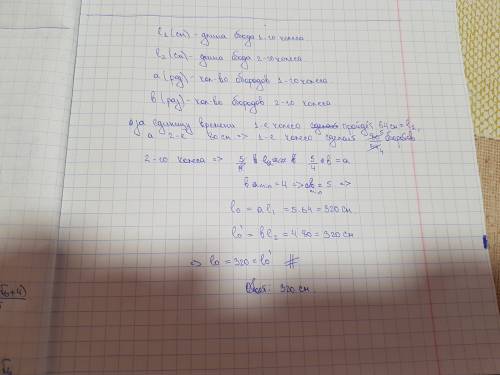 l₁ (см) - длина обода 1-го колеса
l₂ (см) - длина обода 2-го колеса
a (раз) - кол-во оборотов 1-го колеса
b (раз) - кол-во оборотов 2-го колеса
за единицу времени 1-е колесо пройдёт 64 см = l₁,
а 2-е 80 см => 1-е колесо сделает 5/4 оборотов
2-го колеса => 5/4 b = a
b min = 4 => a min = 5 =>
l₀ = al₁ = 5·64 = 320 см
l₀' = bl₂ = 4·80 = 320 см
=> l₀ = 320 = l₀' #
Ответ: 320 см.
+4)